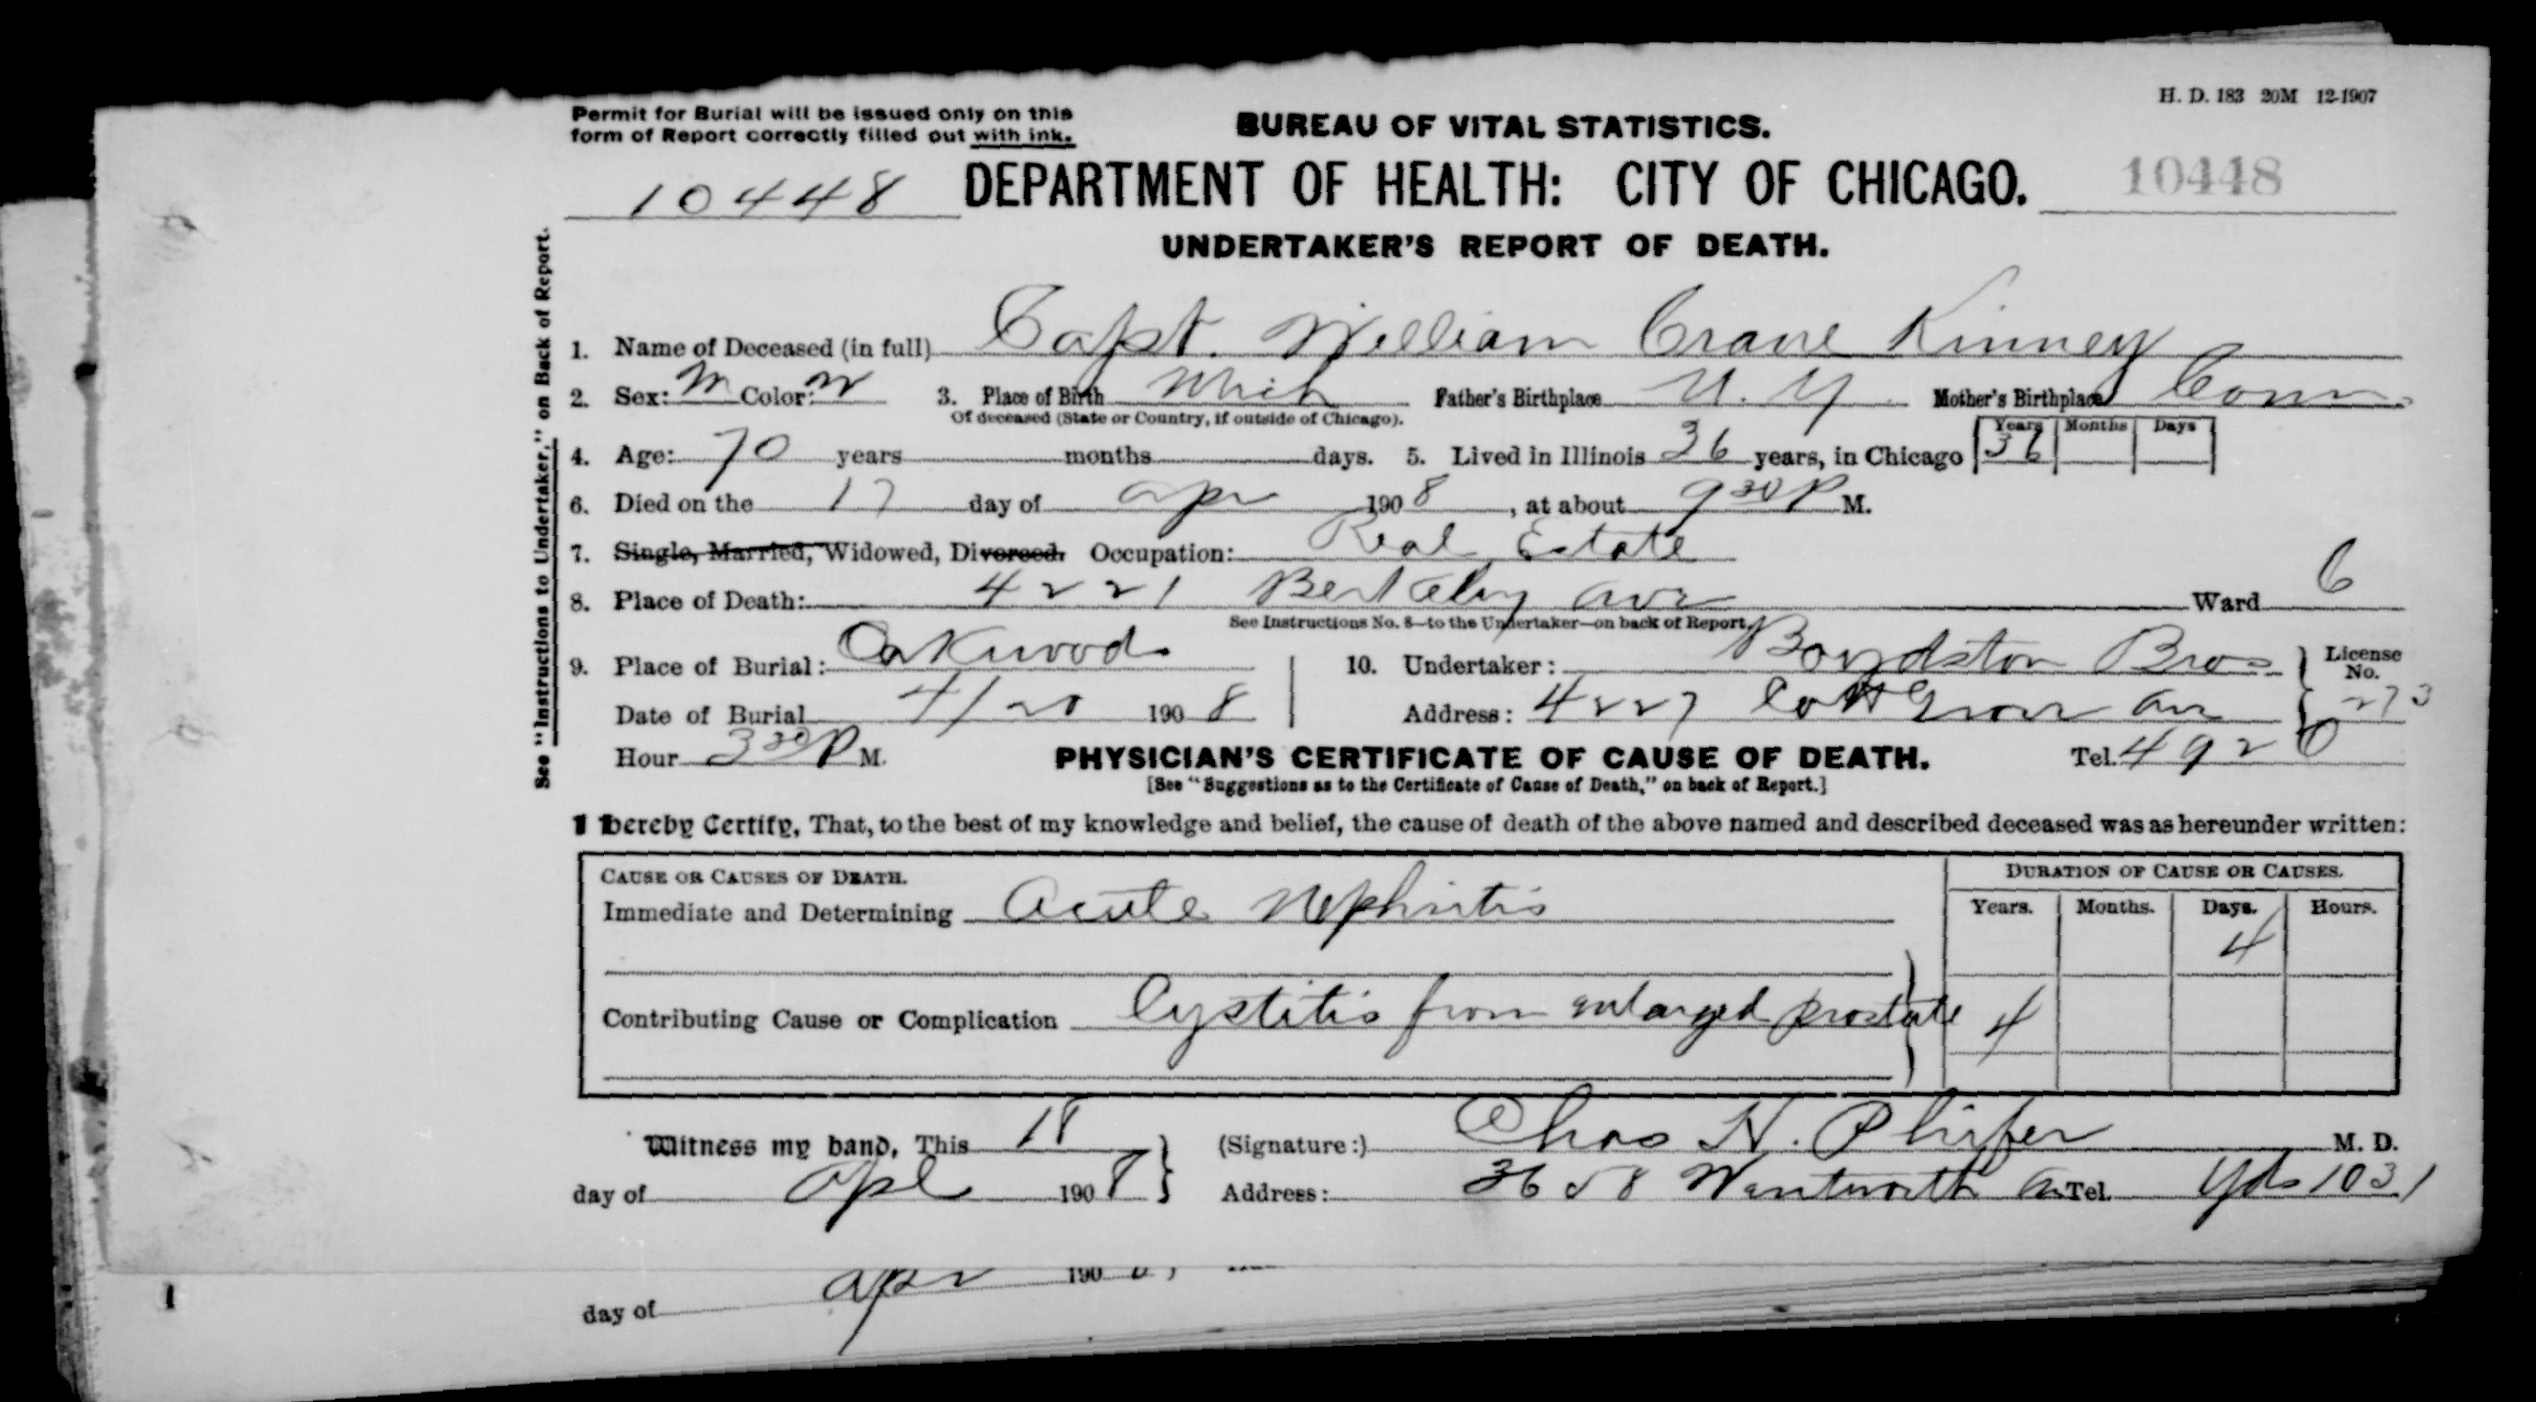 H. D. 183 20M 12-1907
Permit for Burial will be issued only on this
form of Report correctly filled out with ink.
BUREAU OF VITAL STATISTICS.
10448 DEPARTMENT OF HEALTH: CITY OF CHICAGO. 10448
UNDERTAKER'S REPORT OF DEATH.
See "Instructions to Undertaker," on Back of Report.
1. Name of Deceased (in full) Capt. William Crane Kinney
2. Sex: M Color: W 3. Place of Birth Mich Father's Birthplace N. Y Mother's Birthplace Conn
Of deceased (State or Country, if outside of Chicago).
4. Age: 70 years months days. 5. Lived in Illinois 36 years, in Chicago Years 36 Months Days
6. Died on the 17 day of Apr 1908, at about 9 30 P M.
7. Single, Married, Widowed, Divorced. Occupation: Real Estate
8. Place of Death: 4221 Berkeley Ave Ward 6
See Instructions No. 8—to the Undertaker—on back of Report.
9. Place of Burial: Oakwoods 10. Undertaker: Boydston Bros License No.
Date of Burial 4/20 1908 Address: 4227 Cott Grove Av 273
Hour 3 30 P M. PHYSICIAN'S CERTIFICATE OF CAUSE OF DEATH. Tel. 4920
[See "Suggestions as to the Certificate of Cause of Death," on back of Report.]
I hereby Certify, That, to the best of my knowledge and belief, the cause of death of the above named and described deceased was as hereunder written:
CAUSE OR CAUSES OF DEATH. DURATION OF CAUSE OR CAUSES.
Immediate and Determining Acute Nephritis Years. Months. Days. Hours.
4
Contributing Cause or Complication Cystitis from enlarged prostate 4
Witness my hand, This 18 (Signature:) Chas H. Phifer M. D.
day of Apl 1908 Address: 3658 Wentworth Av Tel. Yds 1031
day of Apr 190